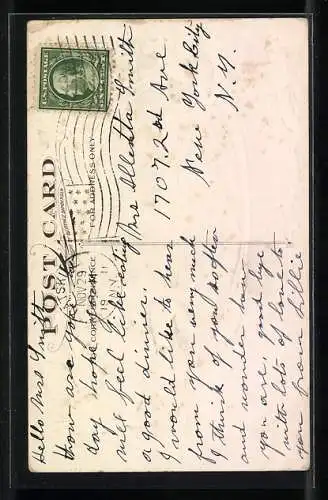 POST CARD
CORRESPONDENCE
FOR ADDRESS ONLY
U.S. POSTAGE
NOV 29
Hello Mrs Smith
How are you
day hope you
will feel like eating
a good dinner.
I would like to hear
from you very much
I think of you so often
and wonder how
you are, good bye
with lots of love to
you from Lillie
Mrs Smith
1707. 2nd Ave
New York City
N.Y.